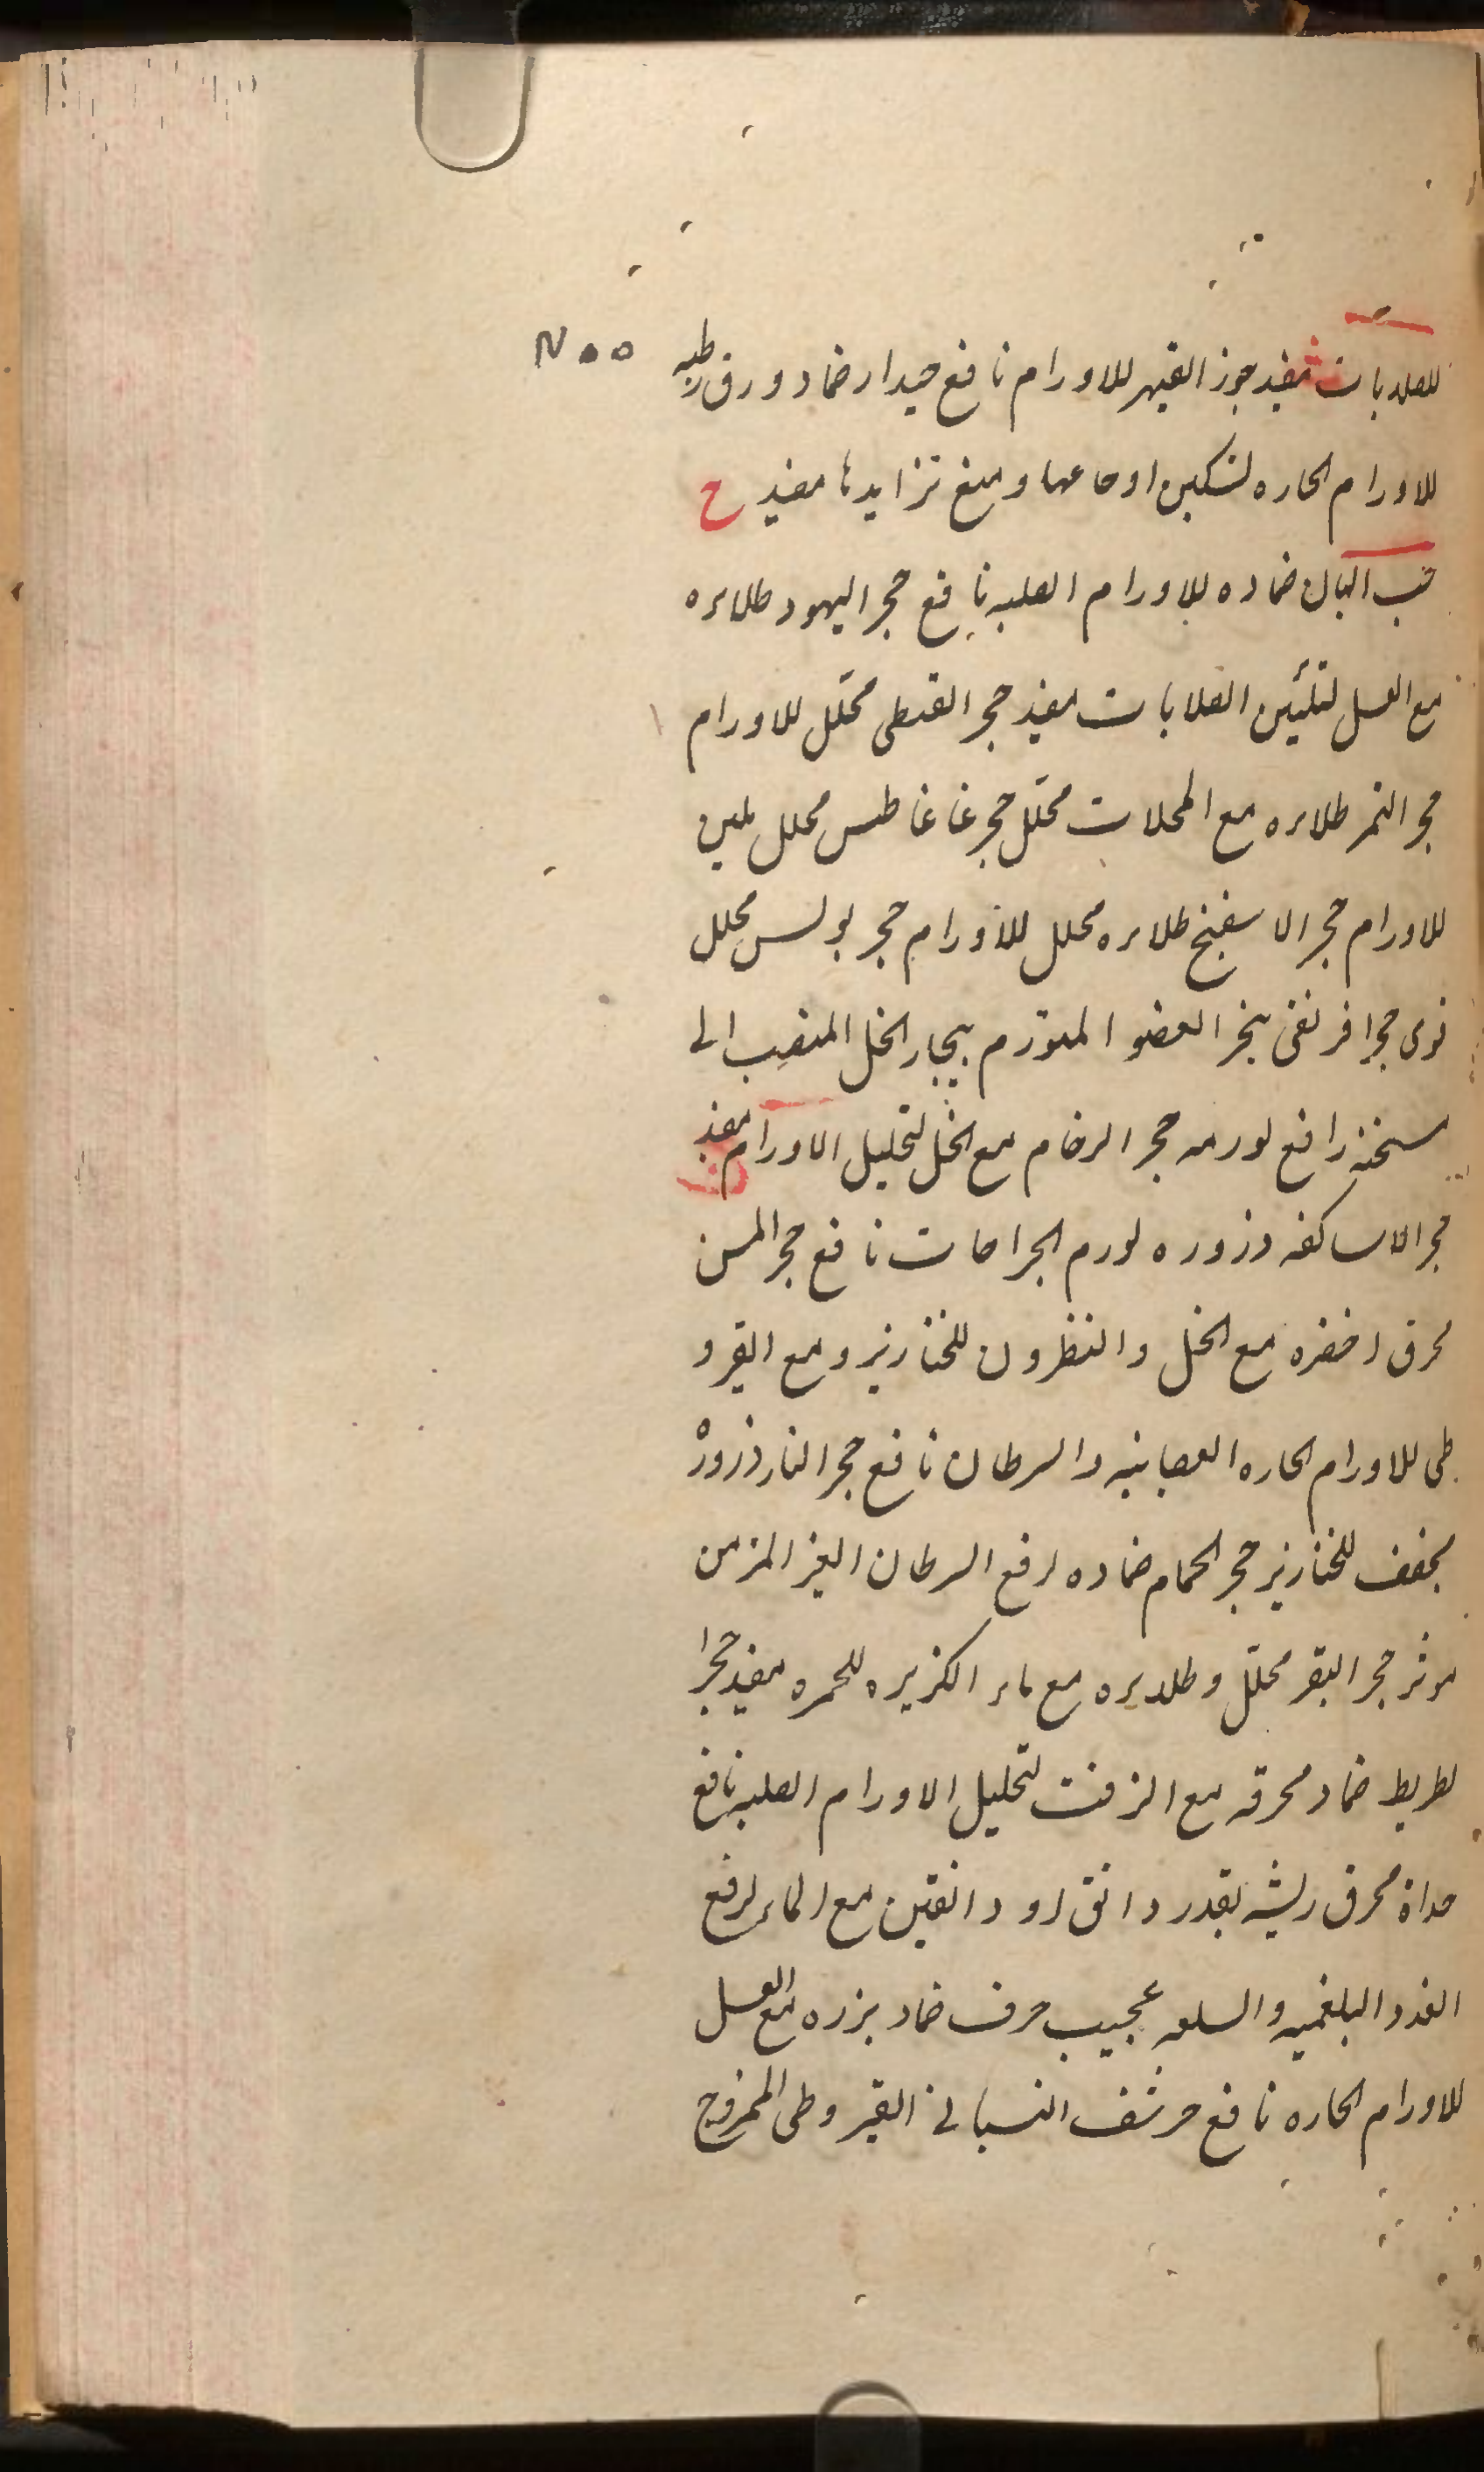 للصلابات مفید جوز القیهر للاورام نافع حیدار ضماد ورق رطبه
٧٥٥
للاورام الحاره لتسکین اوجاعها ومنع تزایدها مفید ح
حب البان ضماده للاورام الصلبه نافع حجر الیهود طلاءه
مع العسل لتلیین الصلابات مفید حجر القبطی محلل للاورام
حجر التمر طلاءه مع المحللات محلل حجر غاغاطس محلل ملین
للاورام حجر الاسفنج طلاءه محلل للاورام حجر بولس محلل
قوی حجر افرنقی بخر العضو المتورم ببخار الخل المنصب الی
سخنه رافع لورمه حجر الرخام مع الخل لتحلیل الاورام مفید
حجر الاساکفه ذروره لورم الجراحات نافع حجر المسن
محرق اخضره مع الخل والنطرون للخنازیر ومع القیرو
طی للاورام الحاره العصبانیه والسرطان نافع حجر النار ذروره
مجفف للخنازیر حجر الحمام ضماده لرفع السرطان الغیر المزمن
موثر حجر البقر محلل وطلاءه مع ماء الکزبره للحمره مفید حجرا
لطریط ضماد محرقه مع الزفت لتحلیل الاورام الصلبه نافع
حداة محرق ریشه بقدر دانق او دانقین مع الماء لرفع
الغدد البلغمیه والسلعه عجیب حرف ضماد بزره مع العسل
للاورام الحاره نافع حرشف القیروطی الممزوج